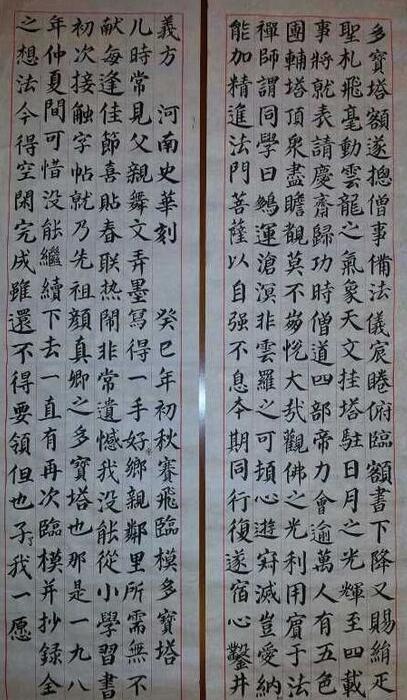 多寶塔額遂摠僧事備法儀宸睠俯臨額書下降又賜絹疋
聖札飛毫動雲龍之氣象天文挂塔駐日月之光輝至四載
事將就表請慶齋歸功時僧道四部帝力會逾萬人有五色
團輔塔頂衆盡瞻觀莫不崩悅大哉觀佛之光利用賓于法
禪師謂同學曰鵬運滄溟非雲羅之可頓心遊寂滅豈愛納
能加精進法門菩薩以自强不息本期同行復遂宿心鑿井
義方 河南史華刻 癸巳年初秋賽飛臨模多寶塔
儿時常見父親舞文弄墨寫得一手好鄉親鄰里所需無不
献每逢佳節喜貼春联热鬧非常遺憾我没能從小學習書
初次接触字帖就乃先祖顔真卿之多寶塔也那是一九八
年仲夏間可惜没能繼續下去一直有再次臨模并抄録全
之想法今得空閑完成雖還不得要領但也了我一愿